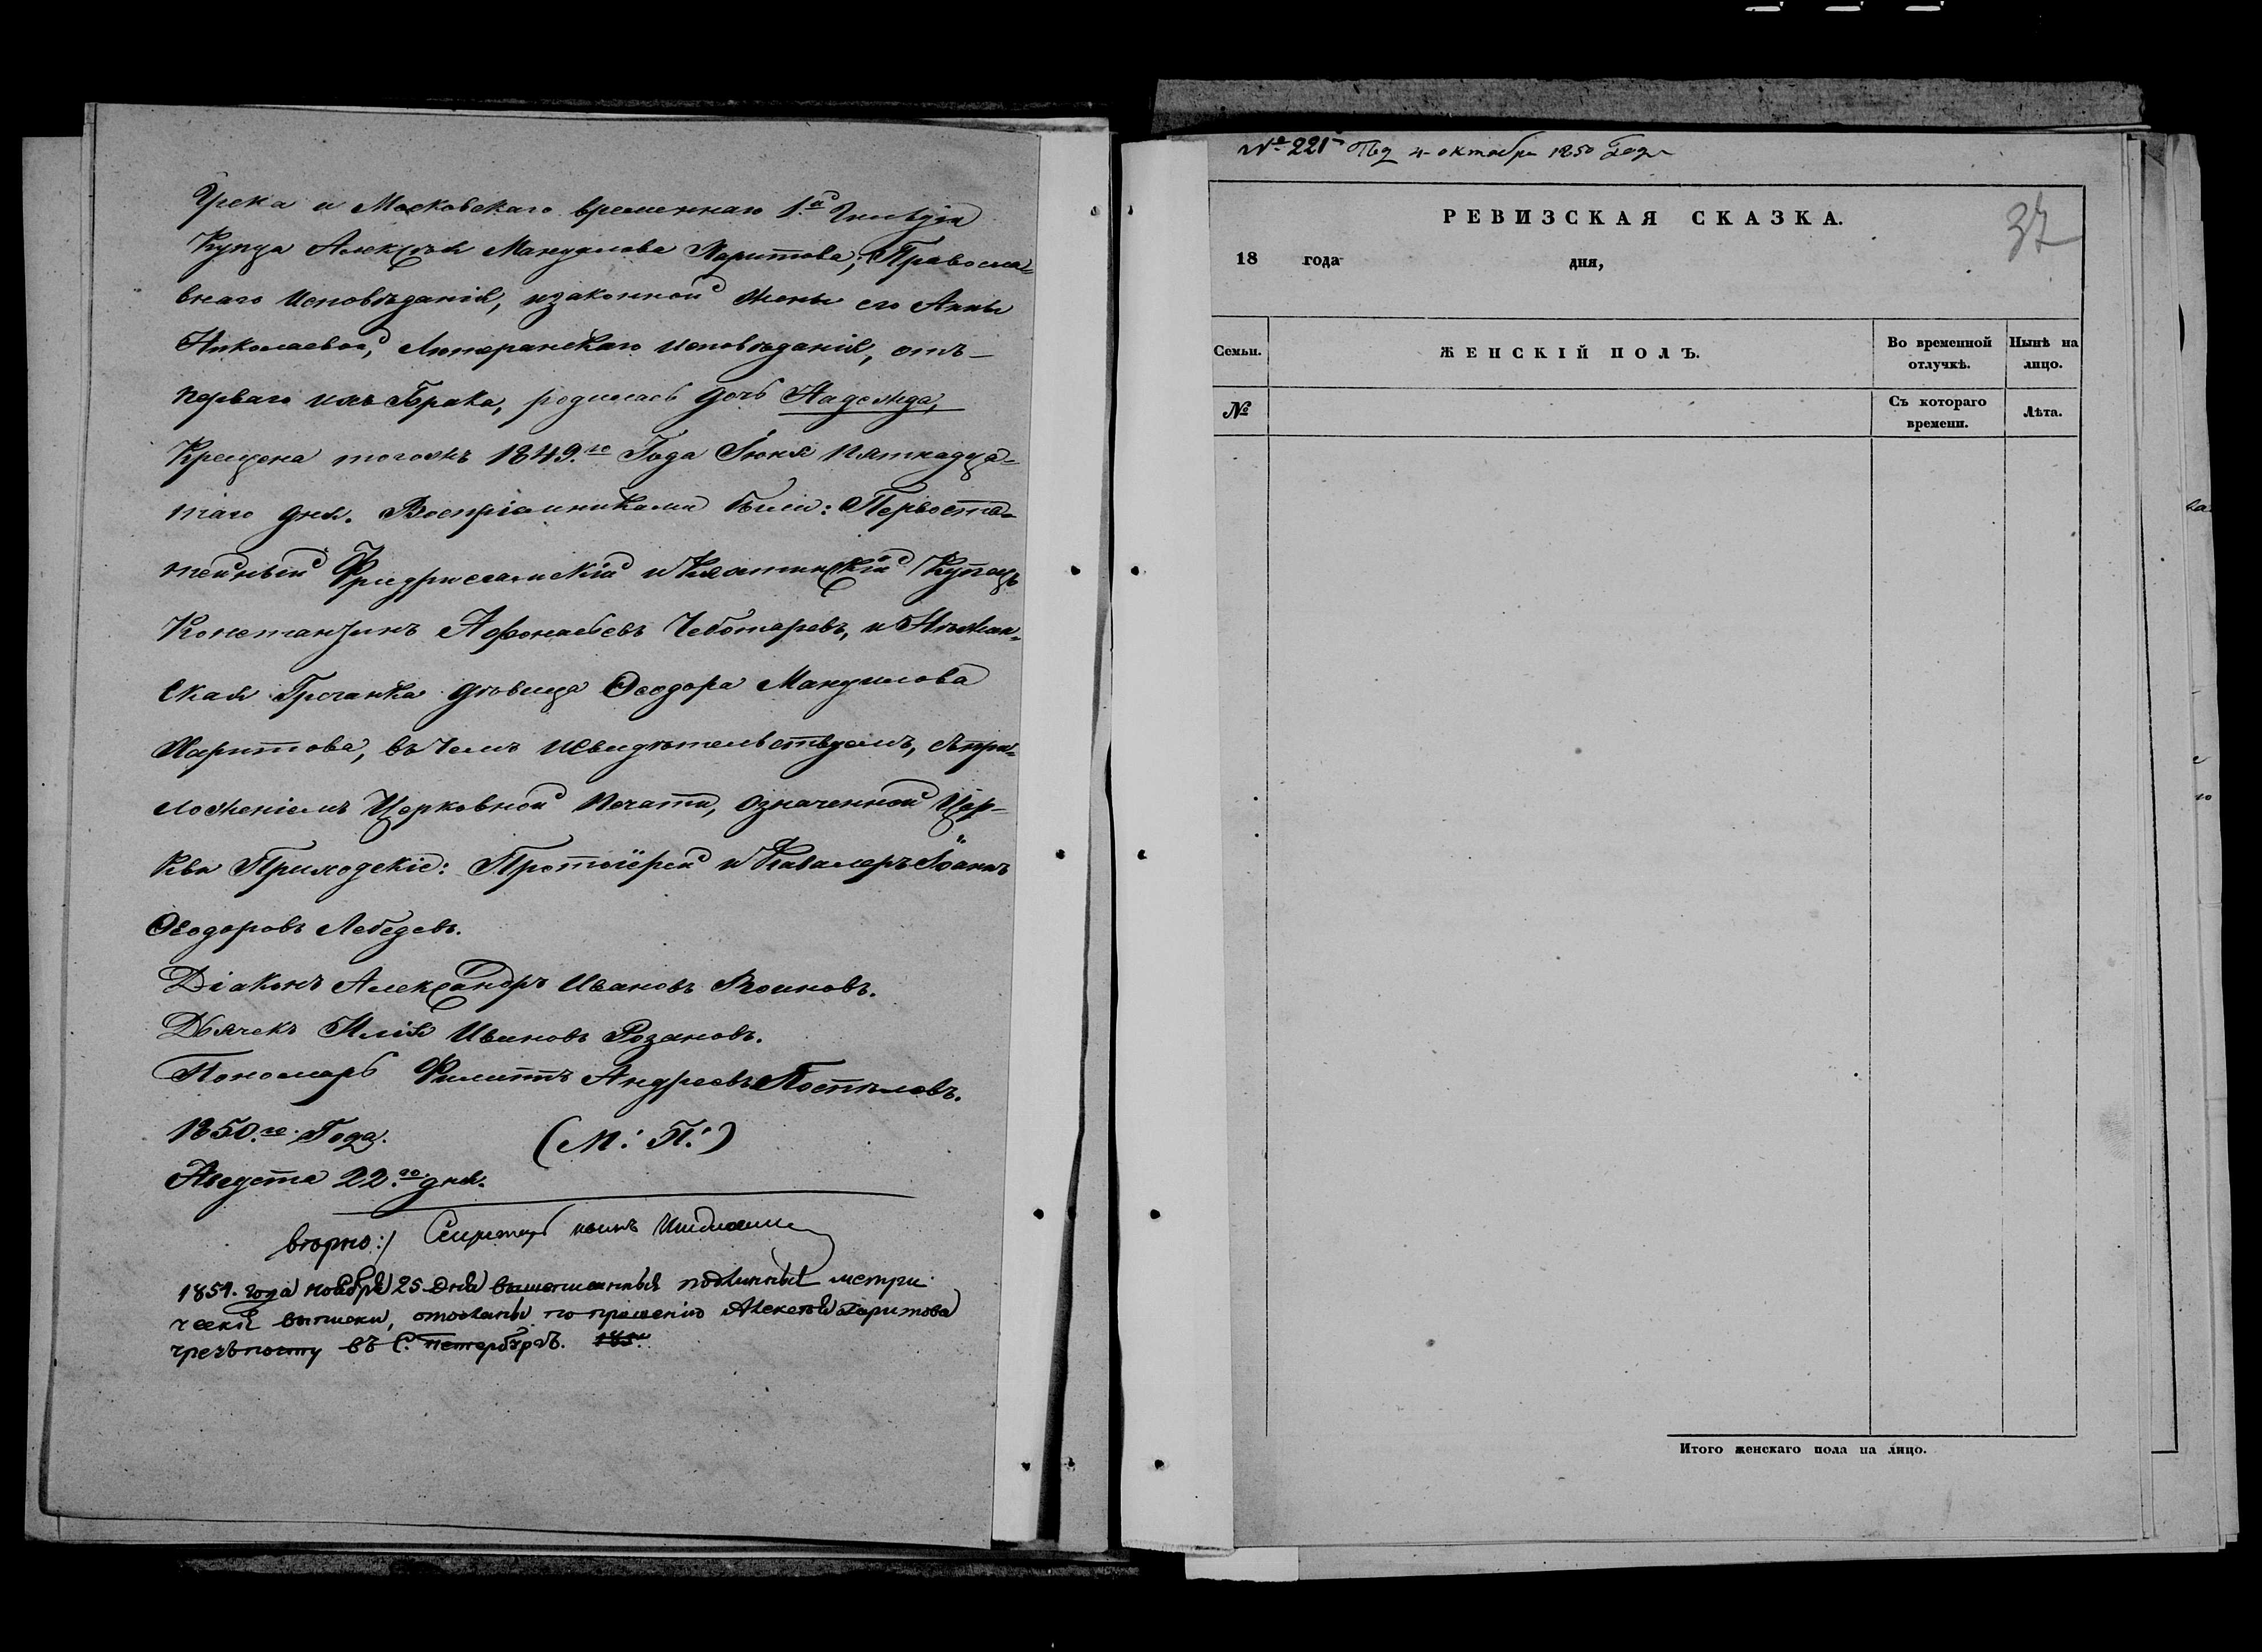 Грека и Московскаго временнаго 1.й Гильдіи
Купца Алексѣя Мануилова Харитова, Правосла=
внаго Исповѣданія, и законной жены его Анны
Николаевой, Лютеранскаго исповѣданія, отъ
перваго ихъ Брака, родилась дочь Надежда,
Крещена тогожъ 1849.го Года Іюня пятнадца=
таго дня. Воспріемниками были: Первоста=
тейный Фридрихсгамскій и Купецъ
Константинъ Афонасьевъ Чеботаревъ, и Нѣжин=
ская Гречанка дѣвица Ѳеодора Мануилова
Харитова, въ чемъ и свидѣтельствуемъ, съ при=
ложеніемъ Церковной печати, означенной Цер=
кви Приходскіе: Протоіерей и Кавалеръ Іоаннъ
Ѳеодоровъ Лебедевъ.
Діаконъ Александръ Ивановъ Воиновъ.
Дьячекъ Илія Ивановъ Розановъ.
Пономарь Филиппъ Андреевъ Поспѣловъ.
1850.го Года. (М: П:)
Августа 22.го дня.
вѣрно:/ Секретарь
1851. года ноября 25 дня вышеписанныя подлинныя метри
ческія выписки, отосланы по прошенію Алексѣя Харитова
чрезъ почту въ С. Петербургъ. 185
№ 221 Под 4 октября 1850 года
37
РЕВИЗСКАЯ СКАЗКА.
18 года дня,
Семьи. ЖЕНСКІЙ ПОЛЪ. Во временной отлучкѣ. Нынѣ на лицо.
№ Съ котораго времени. Лѣта.
Итого женскаго пола на лицо.